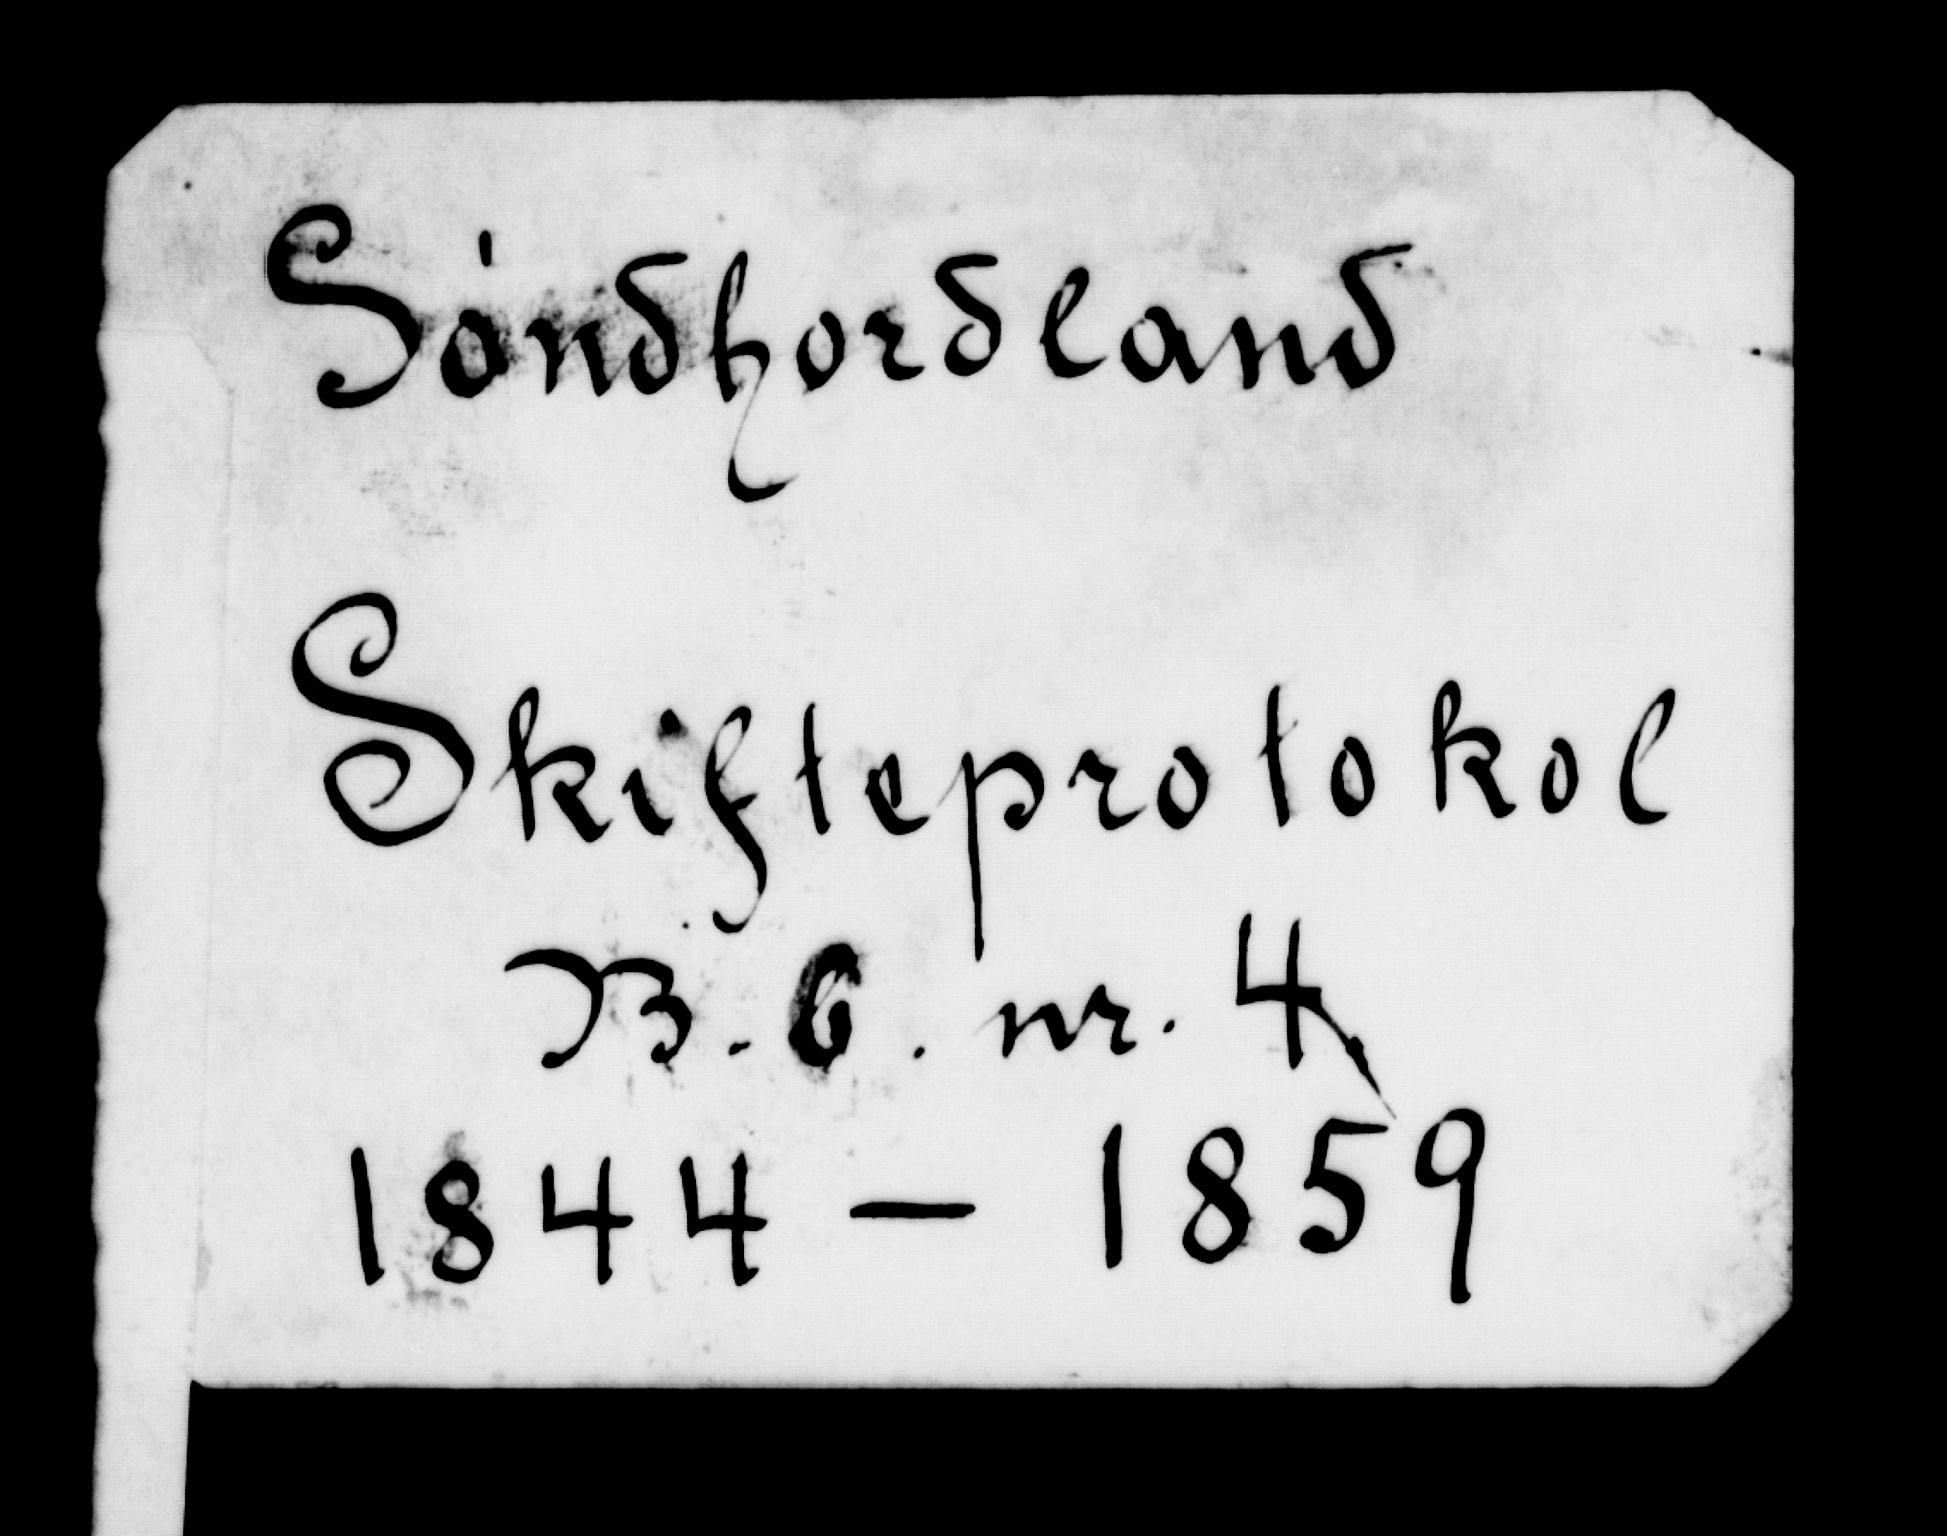 Søndhordland
Skifteprotokol
B. 6. nr. 4
1844 — 1859